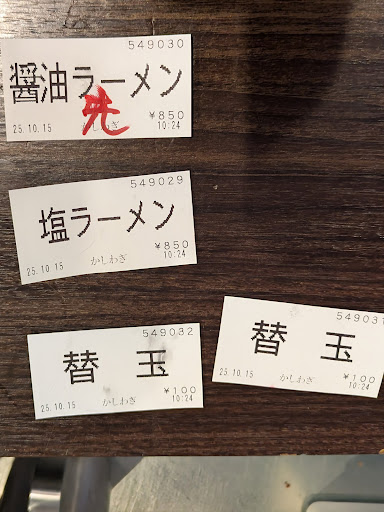 549030
醤油ラーメン
先
¥850
25.10.15 かしわぎ 10:24
549029
塩ラーメン
¥850
25.10.15 かしわぎ 10:24
549031
替 玉
¥100
25.10.15 かしわぎ 10:24
549032
替 玉
¥100
25.10.15 かしわぎ 10:24